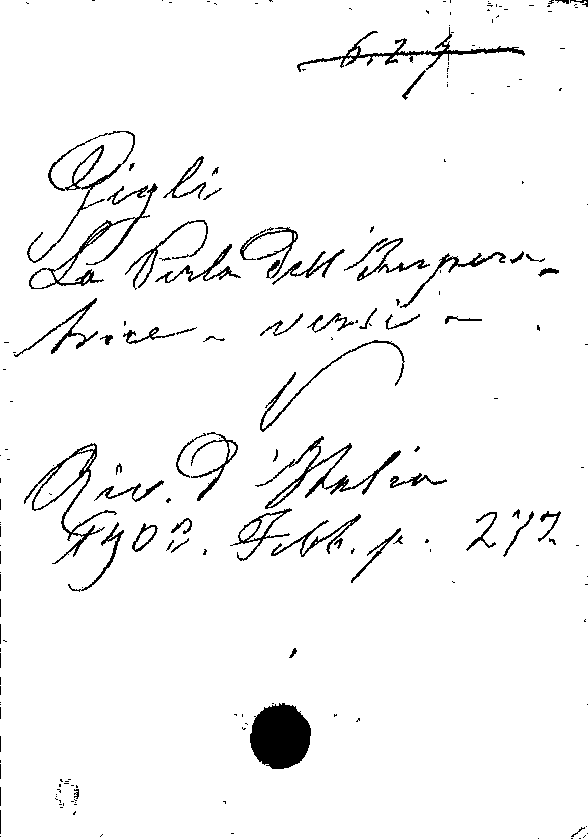 6.2.7
Gigli
La Perla dell'Impera-
trice - versi -
V
Riv. d'Italia
1903. Febb. p. 277